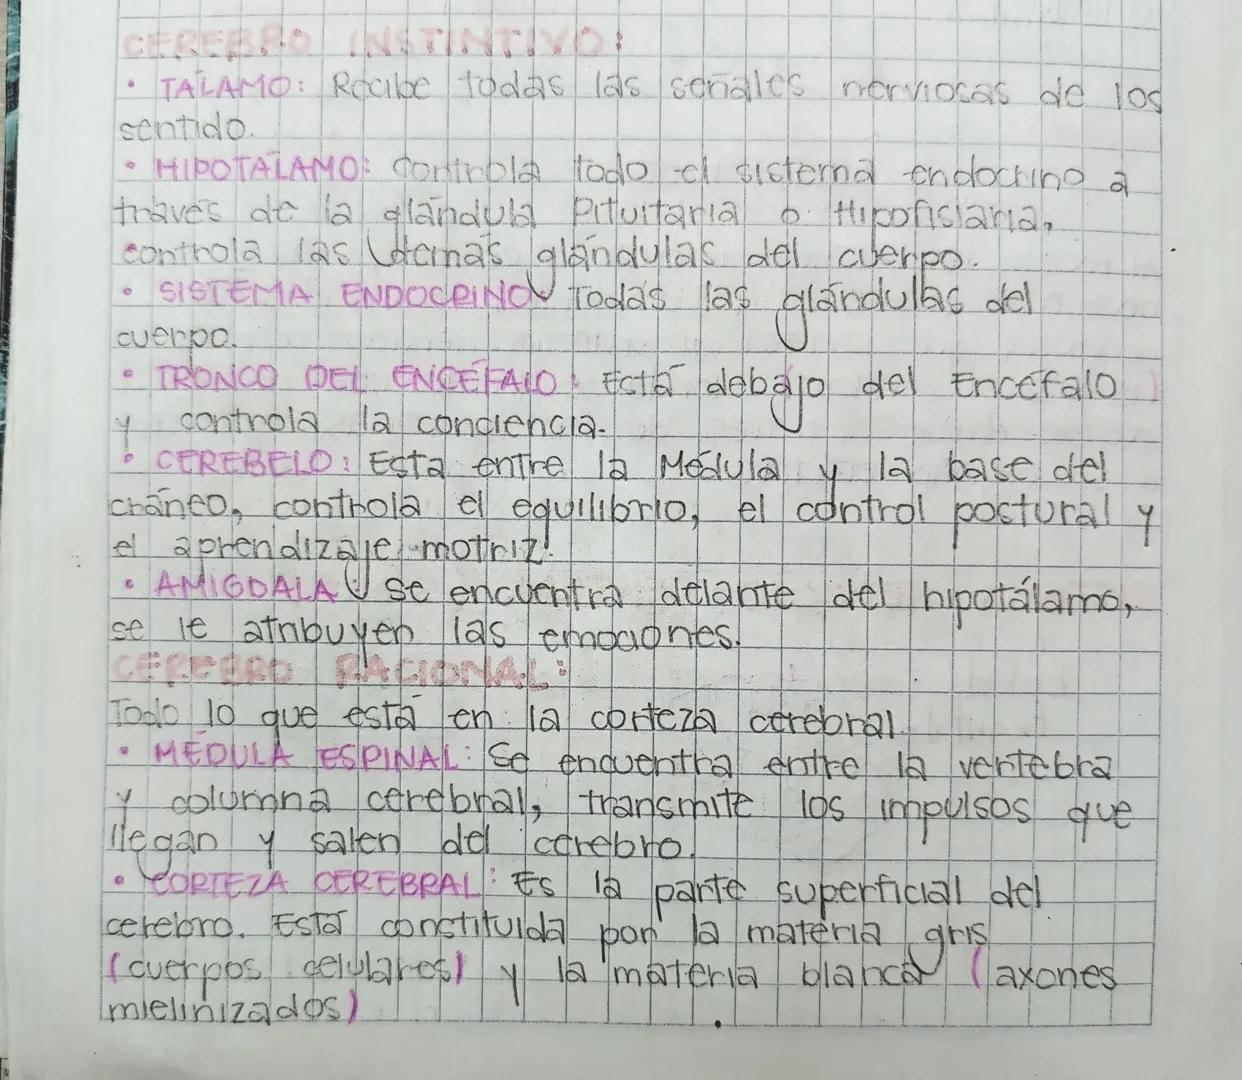 CEREBRO INSTINTIVO:
• TÁLAMO: Recibe todas las señales nerviosas de los
sentido.
• HIPOTÁLAMO: Controla todo el sistema endocrino a
través de la glándula Pituitaria o Hipofisiaria,
controla las demás glándulas del cuerpo.
• SISTEMA ENDOCRINO: Todas las glándulas del
cuerpo.
• TRONCO DEL ENCÉFALO: Está debajo del Encéfalo
y controla la conciencia.
• CEREBELO: Esta entre la Médula y la base del
cráneo, controla el equilibrio, el control postural y
el aprendizaje motriz.
• AMIGDALA: Se encuentra delante del hipotálamo,
se le atribuyen las emociones.
CEREBRO RACIONAL:
Todo lo que está en la corteza cerebral.
• MÉDULA ESPINAL: Se encuentra entre la vertebra
y columna cerebral, transmite los impulsos que
llegan y salen del cerebro.
• CORTEZA CEREBRAL: Es la parte superficial del
cerebro. Está constituida por la materia gris
(cuerpos celulares) y la materia blanca (axones
mielinizados)